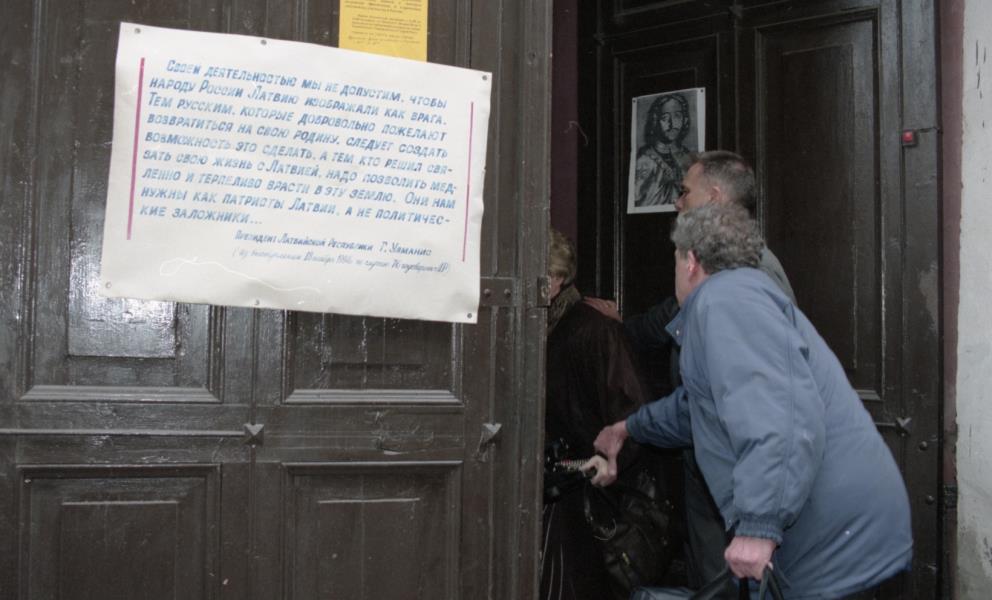 Своей деятельностью мы не допустим, чтобы
народу России Латвию изображали как врага.
Тем русским, которые добровольно пожелают
возвратиться на свою родину, следует создать
возможность это сделать, а тем кто решил свя-
зать свою жизнь с Латвией, надо позволить мед-
ленно и терпеливо врасти в эту землю. Они нам
нужны как патриоты Латвии, а не политичес-
кие заложники...
Президент Латвийской Республики Г. Улманис
(из выступления 18 ноября 1994 по случаю 76 годовщины ЛР)